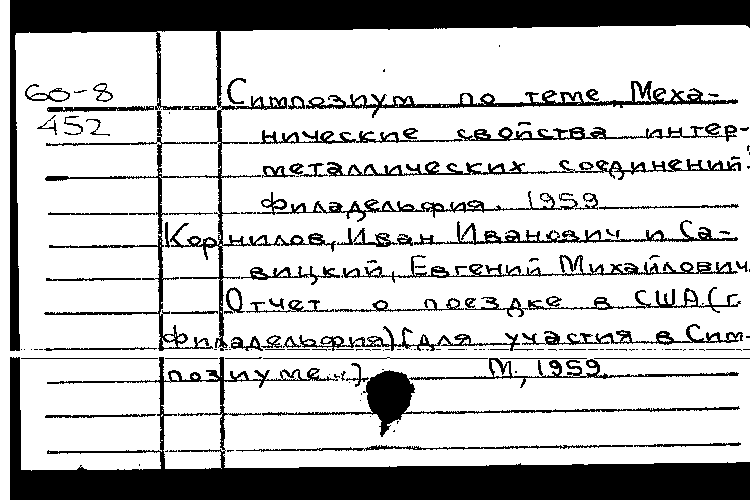 60-8 Симпозиум по теме „Меха-
452 нические свойства интер-
металлических соединений".
Филадельфия. 1959
Корнилов, Иван Иванович и Са-
вицкий, Евгений Михайлович.
Отчет о поездке в США (г.
Филадельфия) [для участия в Сим-
позиуме...] М., 1959.